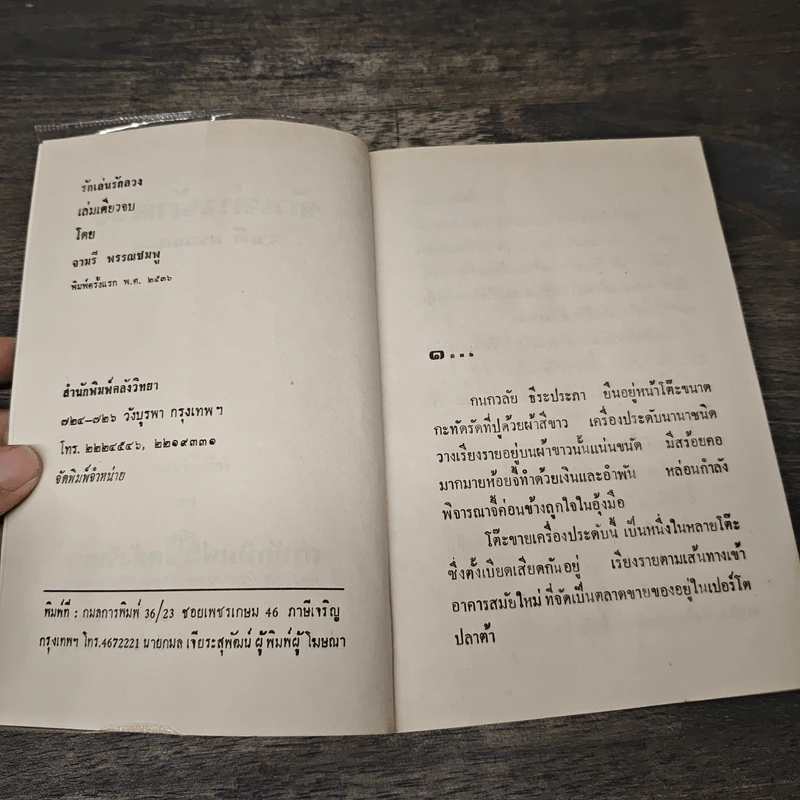 รักเล่นรักลวง
เล่มเดียวจบ
โดย
จามรี พรรณชมพู
พิมพ์ครั้งแรก พ.ศ. ๒๕๓๖
สำนักพิมพ์คลังวิทยา
๗๒๔–๗๒๖ วังบูรพา กรุงเทพฯ
โทร. ๒๒๒๔๕๔๖, ๒๒๑๙๓๓๑
จัดพิมพ์จำหน่าย
พิมพ์ที่ : กมลการพิมพ์ 36/23 ซอยเพชรเกษม 46 ภาษีเจริญ
กรุงเทพฯ โทร.4672221 นายกมล เจียระสุพัฒน์ ผู้พิมพ์ผู้โฆษณา
๑...
กนกวลัย ธีระประภา ยืนอยู่หน้าโต๊ะขนาด
กะทัดรัดที่ปูด้วยผ้าสีขาว เครื่องประดับนานาชนิด
วางเรียงรายอยู่บนผ้าขาวนั้นแน่นขนัด มีสร้อยคอ
มากมายห้อยจี้ทำด้วยเงินและอำพัน หล่อนกำลัง
พิจารณาจี้ค่อนข้างถูกใจในอุ้งมือ
โต๊ะขายเครื่องประดับนี้ เป็นหนึ่งในหลายโต๊ะ
ซึ่งตั้งเบียดเสียดกันอยู่ เรียงรายตามเส้นทางเข้า
อาคารสมัยใหม่ ที่จัดเป็นตลาดขายของอยู่ในเปอร์โต
ปลาต้า